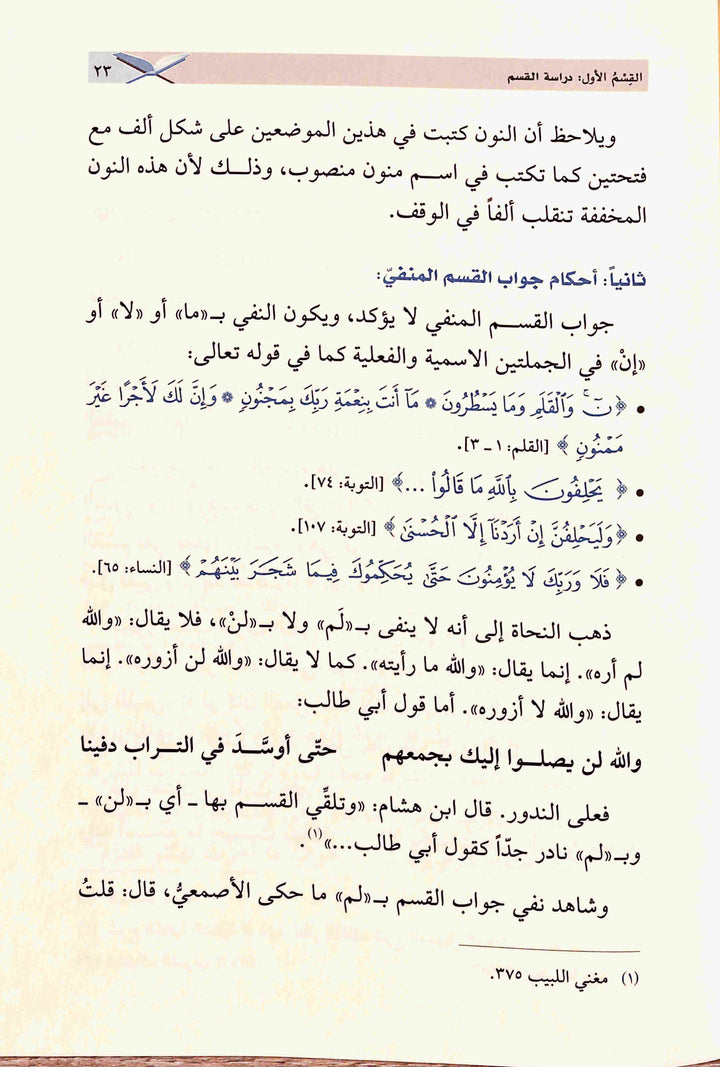 القِسْمُ الأول: دراسة القسم
٢٣
ويلاحظ أن النون كتبت في هذين الموضعين على شكل ألف مع
فتحتين كما تكتب في اسم منون منصوب، وذلك لأن هذه النون
المخففة تنقلب ألفاً في الوقف.
ثانياً: أحكام جواب القسم المنفيّ:
جواب القسم المنفي لا يؤكد، ويكون النفي بـ«ما» أو «لا» أو
«إنْ» في الجملتين الاسمية والفعلية كما في قوله تعالى:
• ﴿نٓ ۚ وَٱلْقَلَمِ وَمَا يَسْطُرُونَ * مَآ أَنتَ بِنِعْمَةِ رَبِّكَ بِمَجْنُونٍ * وَإِنَّ لَكَ لَأَجْرًا غَيْرَ
مَمْنُونٍ﴾ [القلم: ١ ـ ٣].
• ﴿يَحْلِفُونَ بِٱللَّهِ مَا قَالُوا۟ ...﴾ [التوبة: ٧٤].
• ﴿وَلَيَحْلِفُنَّ إِنْ أَرَدْنَآ إِلَّا ٱلْحُسْنَىٰ﴾ [التوبة: ١٠٧].
• ﴿فَلَا وَرَبِّكَ لَا يُؤْمِنُونَ حَتَّىٰ يُحَكِّمُوكَ فِيمَا شَجَرَ بَيْنَهُمْ﴾ [النساء: ٦٥].
ذهب النحاة إلى أنه لا ينفى بـ«لَم» ولا بـ«لنْ»، فلا يقال: «والله
لم أره». إنما يقال: «والله ما رأيته». كما لا يقال: «والله لن أزوره». إنما
يقال: «والله لا أزوره». أما قول أبي طالب:
والله لن يصلوا إليك بجمعهم حتّى أوسَّدَ في التراب دفينا
فعلى الندور. قال ابن هشام: «وتلقِّي القسم بها ـ أي بـ«لن» ـ
وبـ«لم» نادر جدّاً كقول أبي طالب...»(١).
وشاهد نفي جواب القسم بـ«لم» ما حكى الأصمعيُّ، قال: قلتُ
(١) مغني اللبيب ٣٧٥.